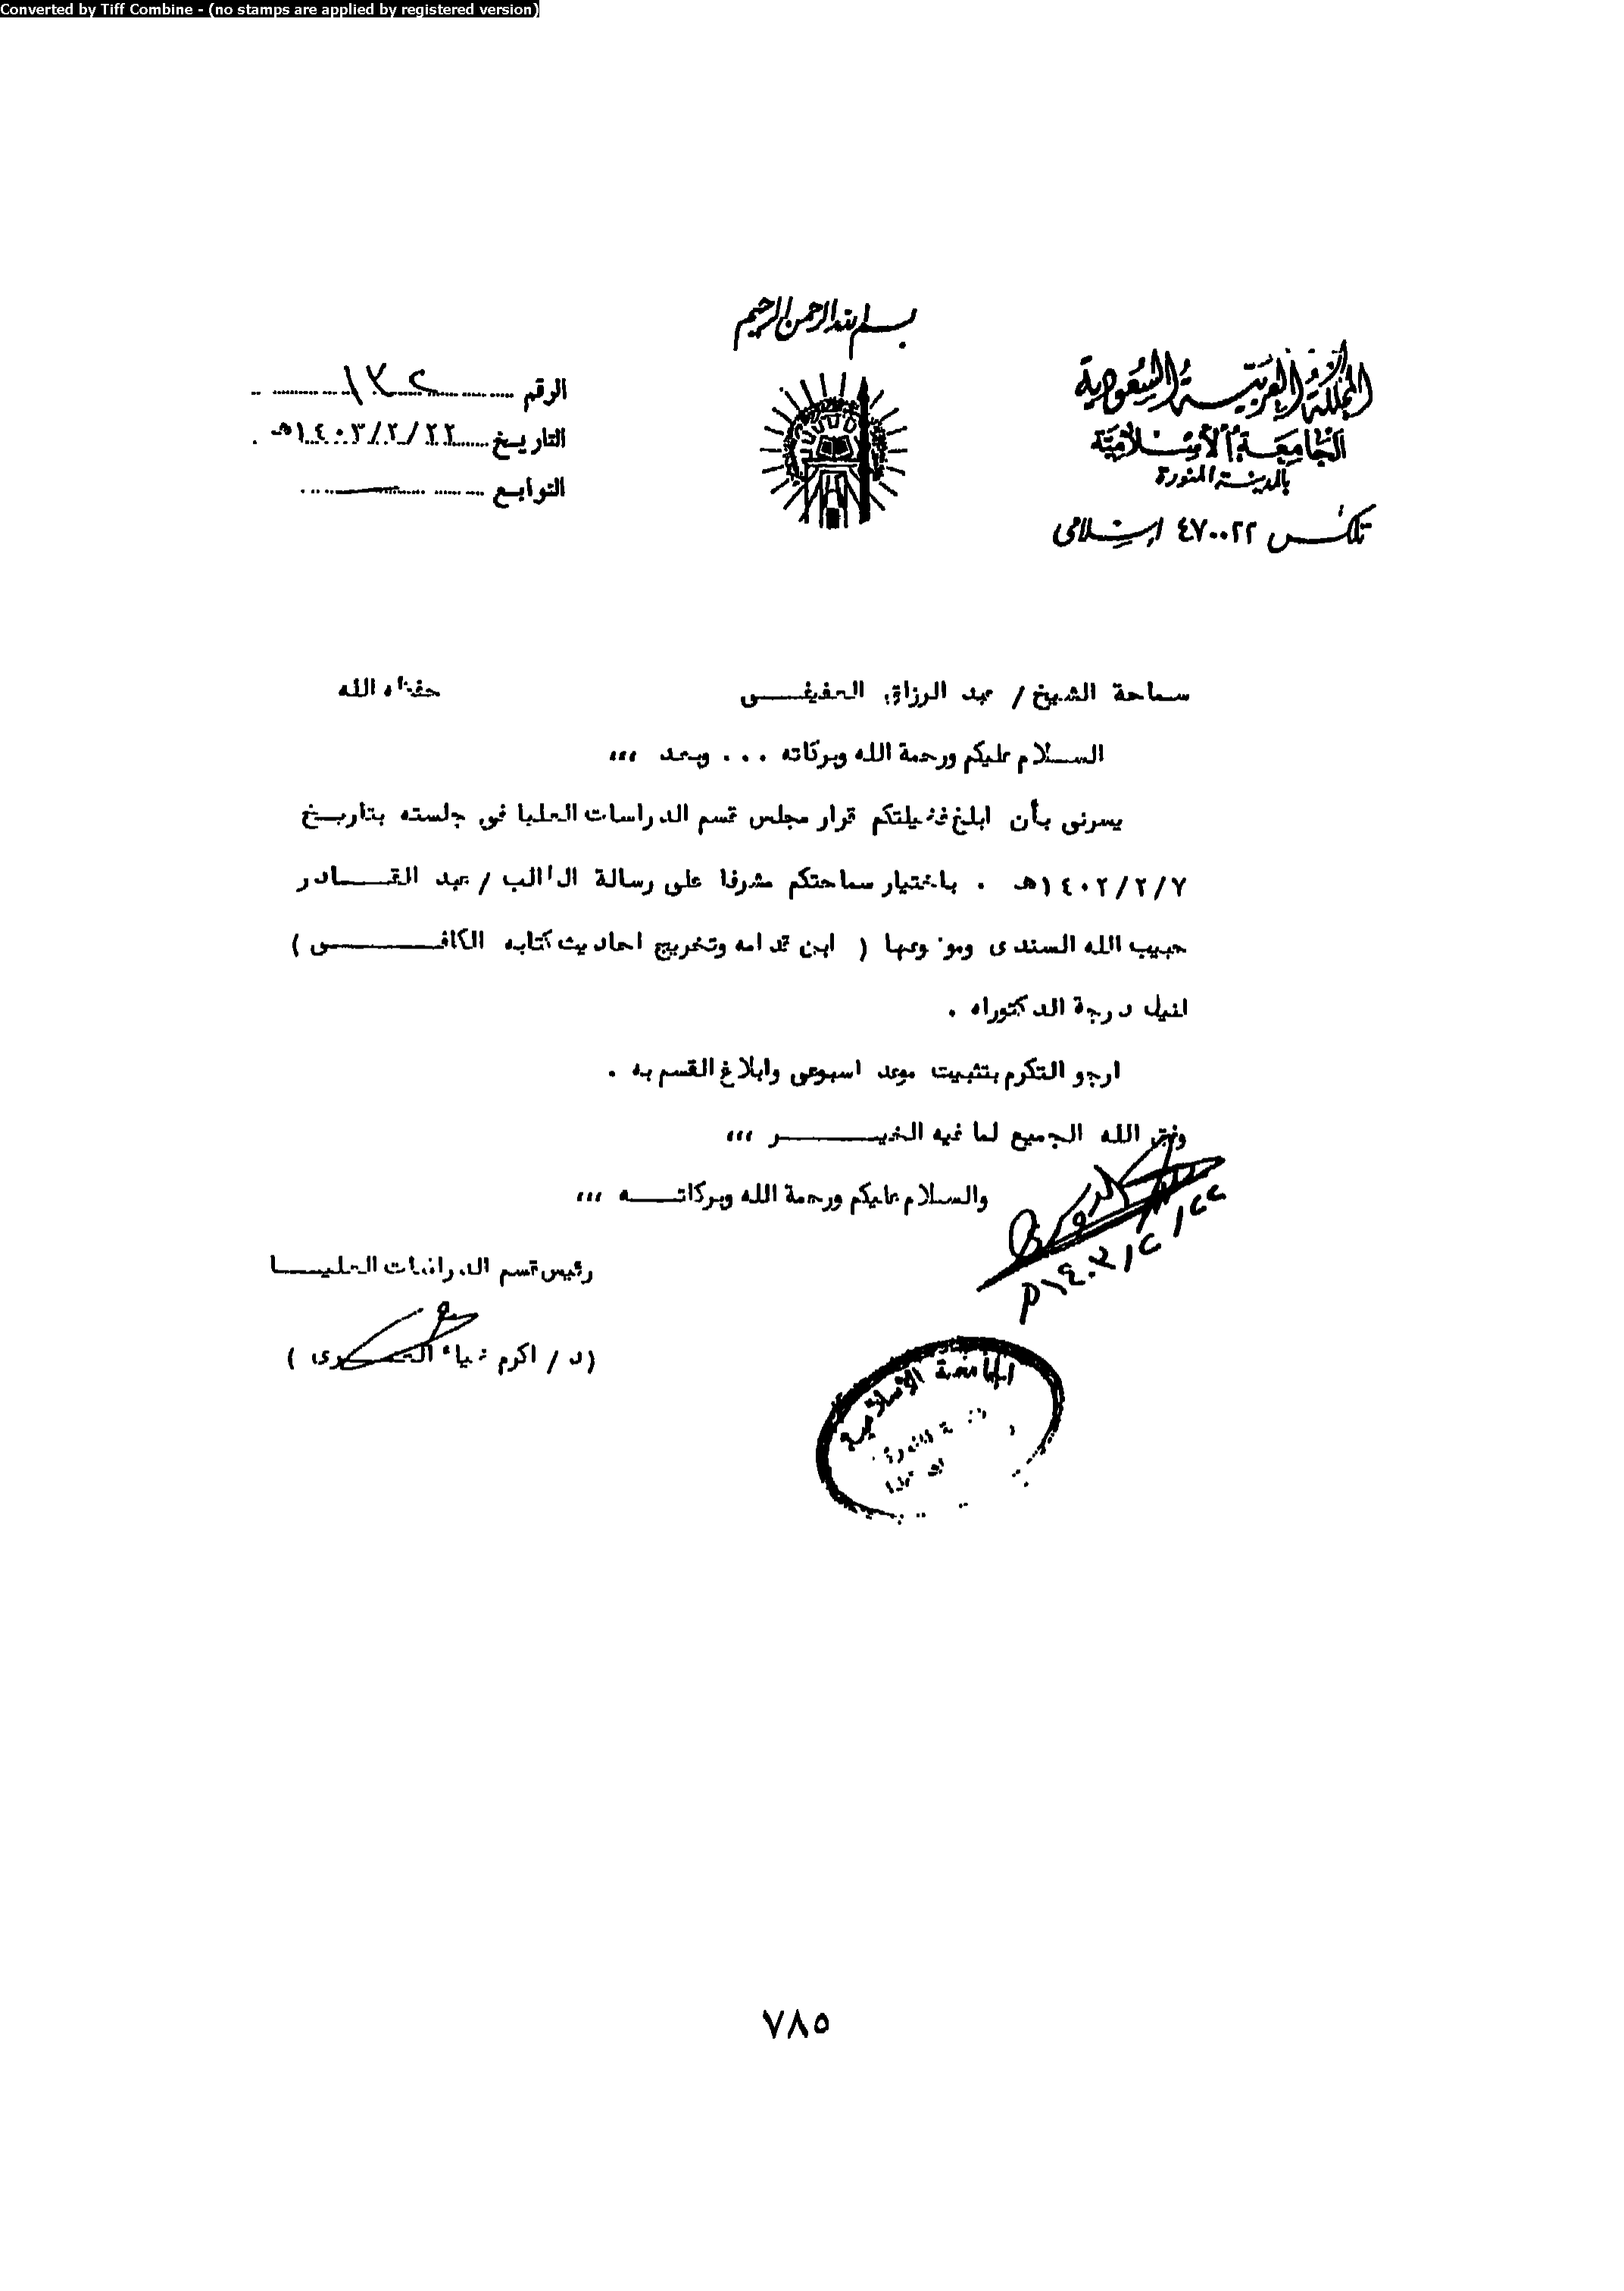 Converted by Tiff Combine - (no stamps are applied by registered version)
بسم الله الرحمن الرحيم
المملكة العربية السعودية
الجامعة الإسلامية
بالمدينة المنورة
تلكس ٤٧٠٠٢٢ إسلامي
الرقم ١٣٢
التاريخ ١٤٠٣/٢/٢٢هـ
التوابع
سماحة الشيخ / عبد الرزاق العفيفى حفظه الله
السلام عليكم ورحمة الله وبركاته ... وبعد ،،،
يسرنى بأن ابلغ فضيلتكم قرار مجلس قسم الدراسات العليا فى جلسته بتاريخ
١٤٠٢/٢/٧هـ . باختيار سماحتكم مشرفا على رسالة الطالب / عبد القادر
حبيب الله السندى وموضوعها ( ابن قدامه وتخريج احاديث كتابه الكافى )
لنيل درجة الدكتوراه .
ارجو التكرم بتثبيت موعد اسبوعى وابلاغ القسم به .
وفق الله الجميع لما فيه الخير ،،،
والسلام عليكم ورحمة الله وبركاته ،،،
١٤٠٣/٢/٢٢
رئيس قسم الدراسات العليا
(د / اكرم ضياء العمرى )
الجامعة الإسلامية
٧٨٥